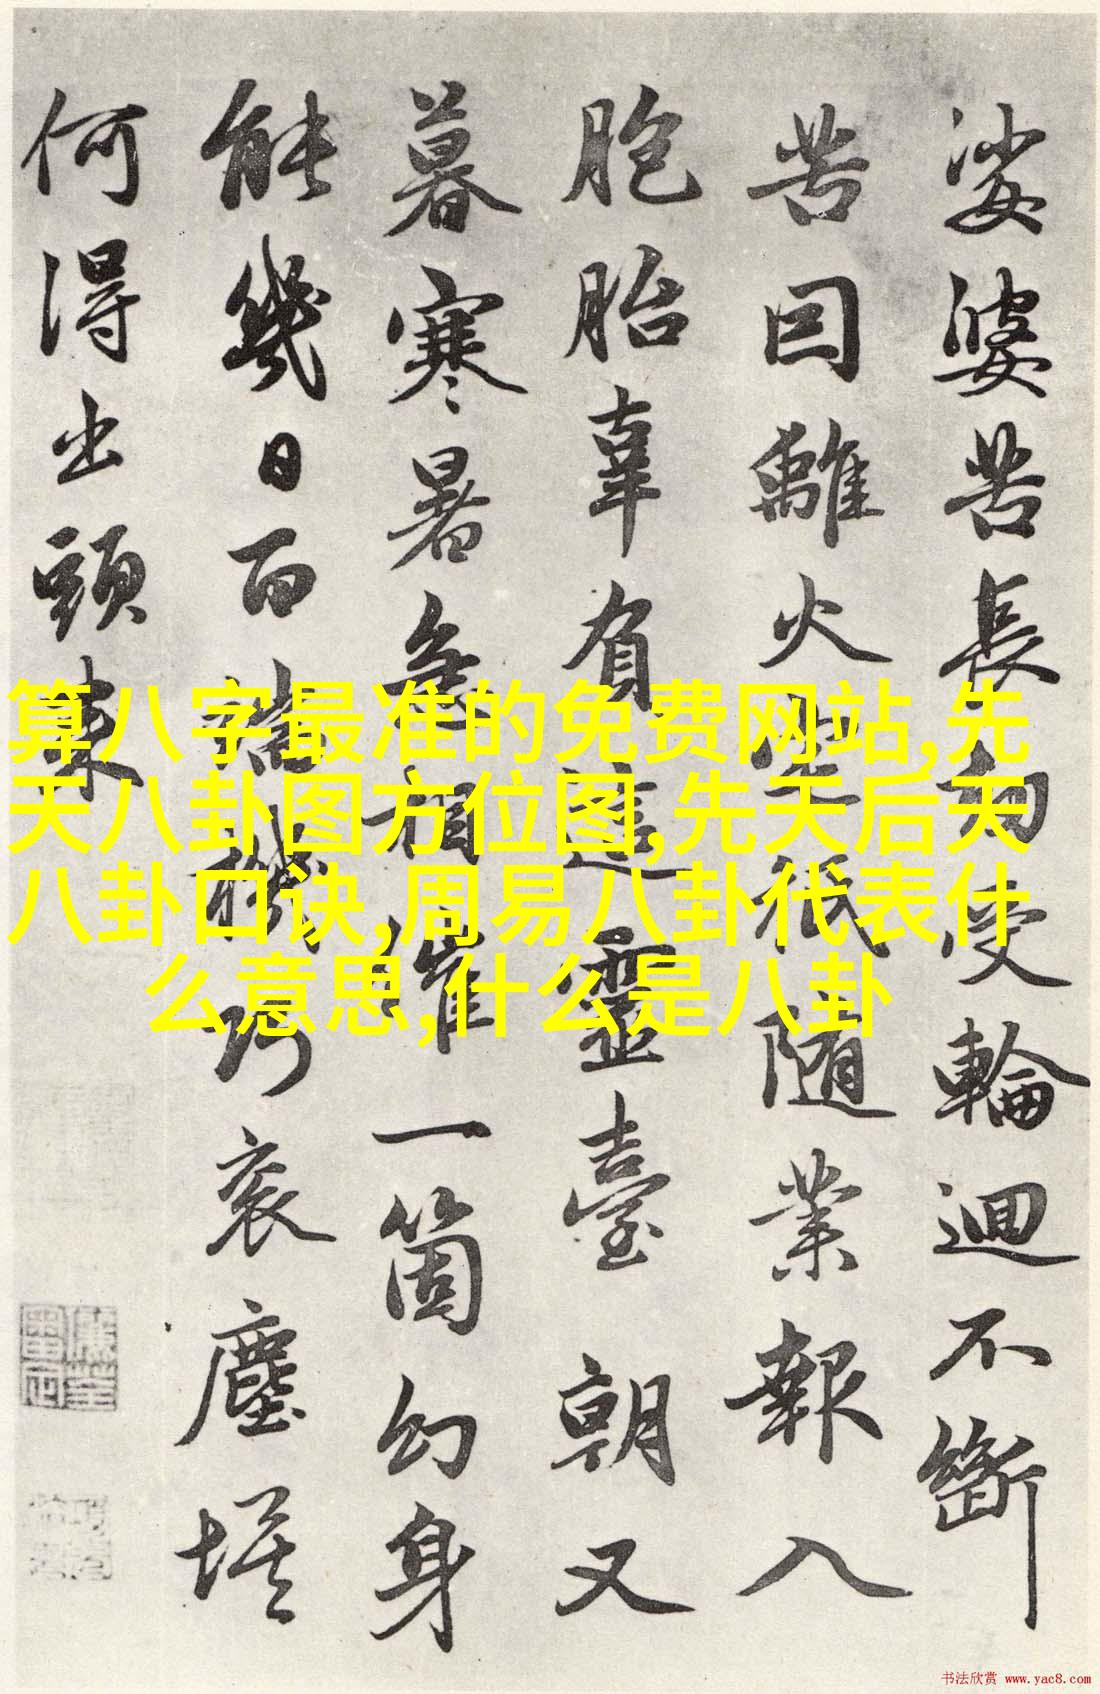 娑婆苦長劫受輪迴不斷
苦囙離火宅秖隨業報入
胞胎辜負這靈臺朝又
暮寒暑急相催一箇幻身
能幾日百端機巧衮塵埃
何得出頭来
算八字最准的免费网站,先
天八卦图方位图,先天后天
八卦口诀,周易八卦代表什
么意思,什么是八卦
书法欣赏 www.yac8.com